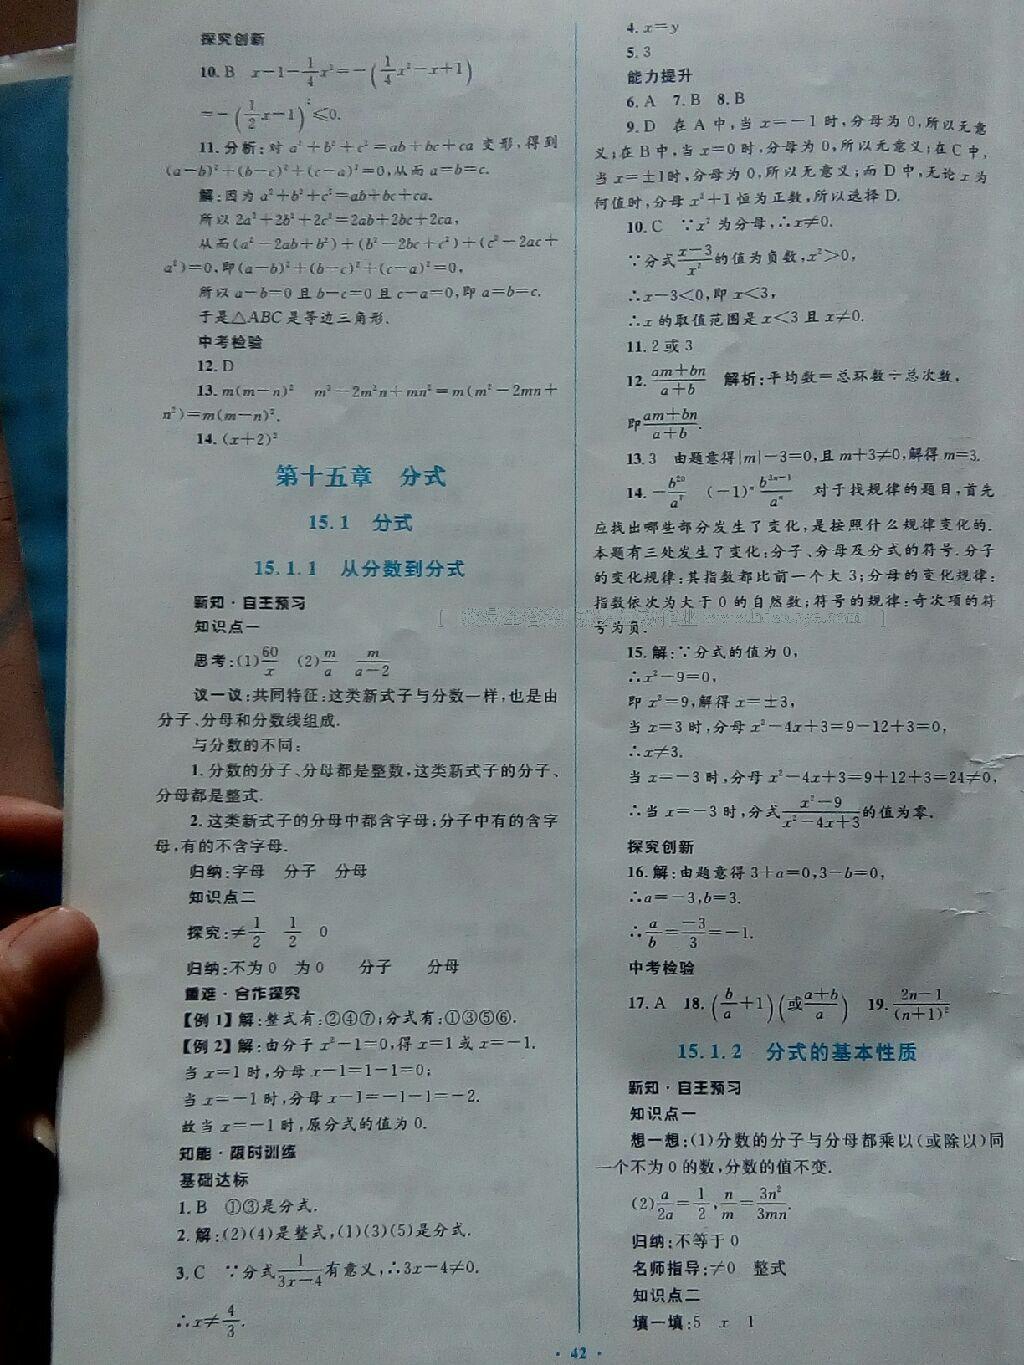 探究创新
10. B　x−1−1/4x²=−(1/4x²−x+1)
=−(1/2x−1)²≤0.
11. 分析:对 a²+b²+c²=ab+bc+ca 变形,得到
(a−b)²+(b−c)²+(c−a)²=0,从而 a=b=c.
解:因为 a²+b²+c²=ab+bc+ca.
所以 2a²+2b²+2c²=2ab+2bc+2ca,
从而(a²−2ab+b²)+(b²−2bc+c²)+(c²−2ac+
a²)=0,即(a−b)²+(b−c)²+(c−a)²=0,
所以 a−b=0 且 b−c=0 且 c−a=0,即 a=b=c.
于是△ABC 是等边三角形.
中考检验
12. D
13. m(m−n)²　m³−2m²n+mn²=m(m²−2mn+
n²)=m(m−n)².
14. (x+2)²
第十五章　分式
15.1　分式
15.1.1　从分数到分式
新知·自主预习
知识点一
思考:(1)60/x　(2)m/a　m/(a−2)
议一议:共同特征:这类新式子与分数一样,也是由
分子、分母和分数线组成.
与分数的不同:
1. 分数的分子、分母都是整数,这类新式子的分子、
分母都是整式.
2. 这类新式子的分母中都含字母;分子中有的含字
母,有的不含字母.
归纳:字母　分子　分母
知识点二
探究:≠1/2　1/2　0
归纳:不为 0　为 0　分子　分母
重难·合作探究
【例 1】解:整式有:②④⑦;分式有:①③⑤⑥.
【例 2】解:由分子 x²−1=0,得 x=1 或 x=−1.
当 x=1 时,分母 x−1=1−1=0;
当 x=−1 时,分母 x−1=−1−1=−2.
故当 x=−1 时,原分式的值为 0.
知能·限时训练
基础达标
1. B　①③是分式.
2. 解:(2)(4)是整式,(1)(3)(5)是分式.
3. C　∵分式1/(3x−4)有意义,∴3x−4≠0.
∴x≠4/3.
4. x=y
5. 3
能力提升
6. A　7. B　8. B
9. D　在 A 中,当 x=−1 时,分母为 0,所以无意
义;在 B 中,当 x=0 时,分母为 0,所以无意义;在 C 中,
当 x=±1时,分母为 0,所以无意义;而 D 中,无论 x 为
何值时,分母 x²+1 恒为正数,所以选择 D.
10. C　∵x² 为分母,∴x≠0.
∵分式(x−3)/x²的值为负数,x²>0,
∴x−3<0,即 x<3,
∴x 的取值范围是 x<3 且 x≠0.
11. 2 或 3
12. (am+bn)/(a+b)　解析:平均数=总环数÷总次数,
即(am+bn)/(a+b).
13. 3　由题意得|m|−3=0,且 m+3≠0,解得 m=3.
14. −b²⁰/a⁷　(−1)ⁿb³ⁿ⁻¹/aⁿ　对于找规律的题目,首先
应找出哪些部分发生了变化,是按照什么规律变化的.
本题有三处发生了变化:分子、分母及分式的符号.分子
的变化规律:其指数都比前一个大 3;分母的变化规律:
指数依次为大于 0 的自然数;符号的规律:奇次项的符
号为负.
15. 解:∵分式的值为 0,
∴x²−9=0,
即 x²=9,解得 x=±3,
当 x=3 时,分母 x²−4x+3=9−12+3=0,
∴x≠3.
当 x=−3 时,分母 x²−4x+3=9+12+3=24≠0,
∴当 x=−3 时,分式(x²−9)/(x²−4x+3)的值为零.
探究创新
16. 解:由题意得 3+a=0,3−b=0,
∴a=−3,b=3.
∴a/b=−3/3=−1.
中考检验
17. A　18. (b/a+1)(或(a+b)/a)　19. (2n−1)/(n+1)²
15.1.2　分式的基本性质
新知·自主预习
知识点一
想一想:(1)分数的分子与分母都乘以(或除以)同
一个不为 0 的数,分数的值不变.
(2)a/2a=1/2,n/m=3n²/3mn.
归纳:不等于 0
名师指导:≠0　整式
知识点二
填一填:5　x　1
· 42 ·